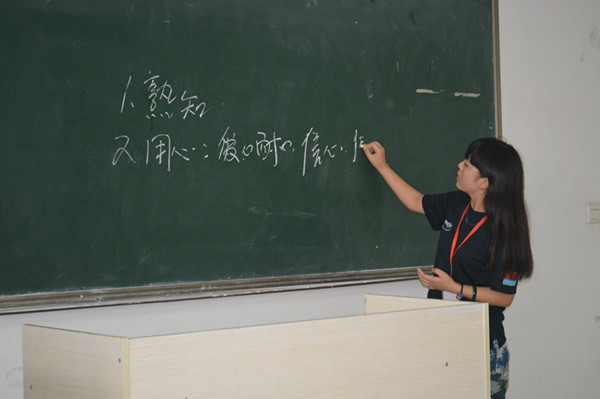 1、熟知
2、用心：爱心耐心、信心、